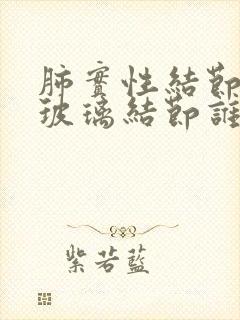 肺實性結節
玻璃結節誰
紫若藍